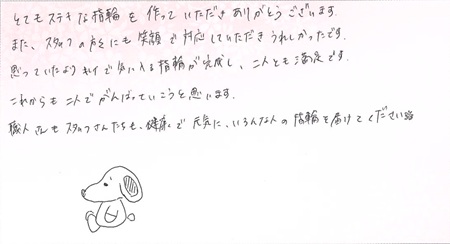 とてもステキな指輪を作っていただきありがとうございます。
また、スタッフの方々にも笑顔で対応していただきうれしかったです。
思っていたよりキレイで気に入る指輪が完成し、二人とも満足です。
これからも二人でがんばっていこうと思います。
職人さんもスタッフさんたちも、健康で元気に、いろんな人の指輪を届けてください